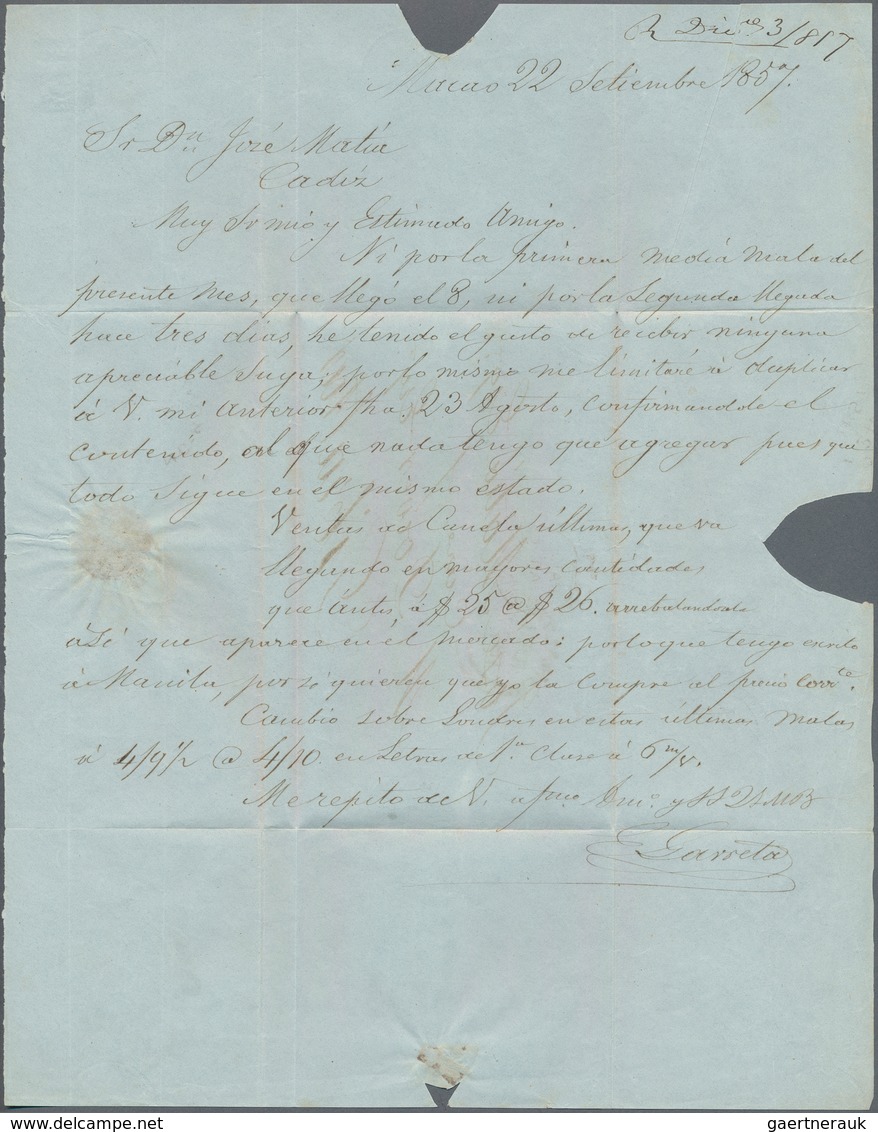 R Dice 3/857
Macao 22 Setiembre 1857.
Sr Dn José Matía
Cadíz
Muy Sr mio y Estimado Amigo.
Ni por la primera media mala del
presente mes, que llegó el 8, ni por la Segunda llegada
hace tres dias, he tenido el gusto de recibir ninguna
apreciable Suya; por lo mismo me limitaré á duplicar
á V. mi anterior fha. 23 Agosto, confirmandole el
contenido, al que nada tengo que agregar pues que
todo Sigue en el mismo estado.
Ventas de Canela últimas, que va
llegando en mayores cantidades
que ántes, á $ 25 @ $ 26. arrebatandose
la que aparece en el mercado: por lo que tengo escrito
á Manila, por si quieren que yo la Compre al precio Corrte.
Cambio sobre Londres en estas últimas malas
á 4/9 1/2 @ 4/10. en Letras de 1a. Clase á 6 m/v.
Me repito de V. afmo Amo. y SS 2 S M B
E Garreta
gaertnerauk